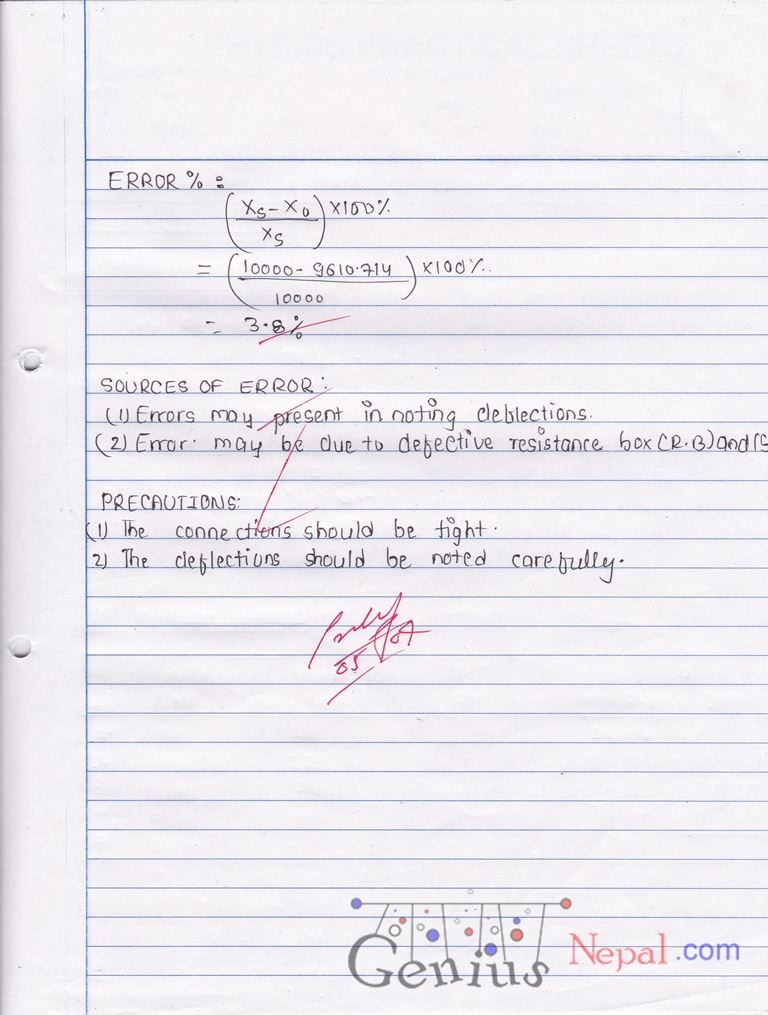 ERROR % :
(Xs - Xo / Xs) ×100%
= (10000 - 9610.714 / 10000) ×100%.
= 3.8%
SOURCES OF ERROR:
(1) Errors may present in noting deblections.
(2) Error. may be due to defective resistance box (R.B) and (S
PRECAUTIONS:
(1) The connections should be tight.
2) The deflections should be noted carefully.
05/07
Genius Nepal.com